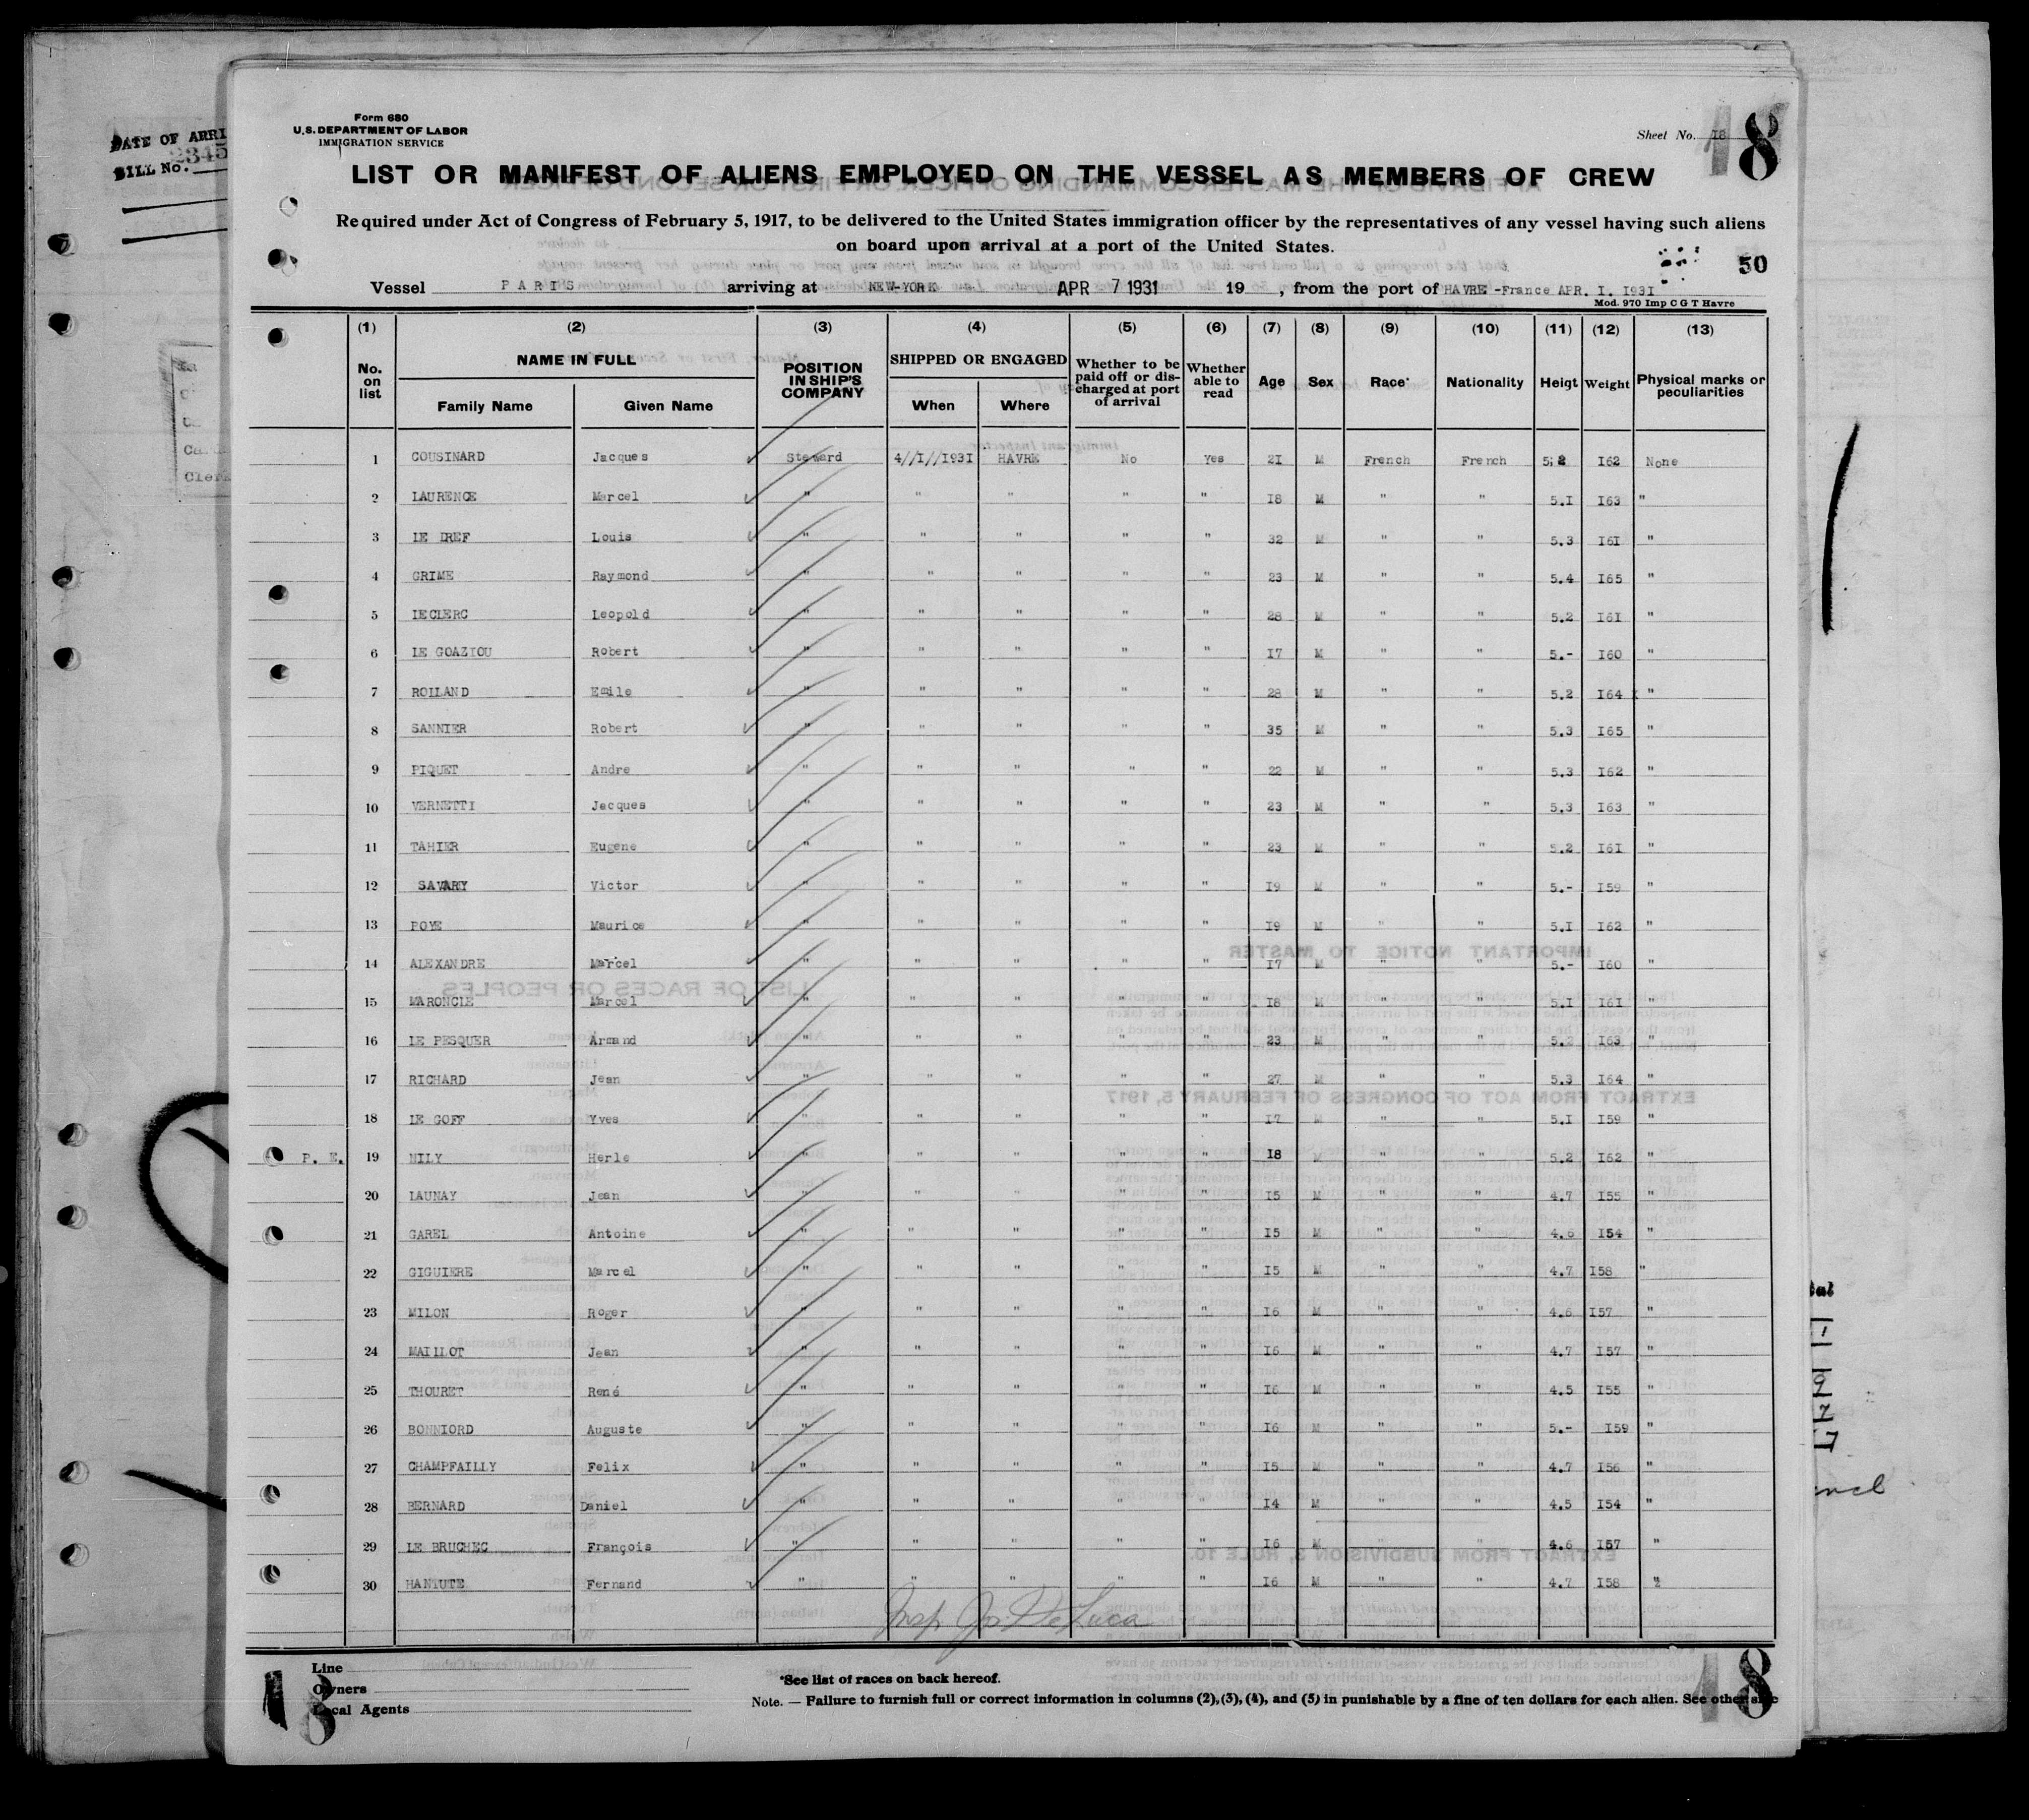 DATE OF ARRI
BILL No. 2345
Form 680
U.S. DEPARTMENT OF LABOR
IMMIGRATION SERVICE
Sheet No. 18
18
LIST OR MANIFEST OF ALIENS EMPLOYED ON THE VESSEL AS MEMBERS OF CREW
Required under Act of Congress of February 5, 1917, to be delivered to the United States immigration officer by the representatives of any vessel having such aliens
on board upon arrival at a port of the United States.
50
Vessel PARIS arriving at NEW-YORK APR 7 1931 19 , from the port of HAVRE -France APR. I. I93I
Mod. 970 Imp C G T Havre
(1) (2) (3) (4) (5) (6) (7) (8) (9) (10) (11) (12) (13)
No. on list NAME IN FULL Family Name Given Name POSITION IN SHIP'S COMPANY SHIPPED OR ENGAGED When Where Whether to be paid off or dis-charged at port of arrival Whether able to read Age Sex Race* Nationality Heigt Weight Physical marks or peculiarities
1 COUSINARD Jacques Steward 4//I//I93I HAVRE No Yes 2I M French French 5;2 I62 None
2 LAURENCE Marcel " " " " " I8 M " " 5.I I63 "
3 LE DREF Louis " " " " " 32 M " " 5.3 I6I "
4 GRIME Raymond " " " " " 23 M " " 5.4 I65 "
5 LECLERC Leopold " " " " " 28 M " " 5.2 I6I "
6 LE GOAZIOU Robert " " " " " I7 M " " 5.- I60 "
7 ROLLAND Emile " " " " " 28 M " " 5.2 I64 "
8 SANNIER Robert " " " " " 35 M " " 5.3 I65 "
9 PIQUET Andre " " " " " 22 M " " 5.3 I62 "
10 VERNETTI Jacques " " " " " 23 M " " 5.3 I63 "
11 TAHIER Eugene " " " " " 23 M " " 5.2 I6I "
12 SAVARY Victor " " " " " I9 M " " 5.- I59 "
13 POYE Maurice " " " " " I9 M " " 5.I I62 "
14 ALEXANDRE Marcel " " " " " I7 M " " 5.- I60 "
15 MARONCLE Marcel " " " " " I8 M " " 5.I I6I "
16 LE PESQUER Armand " " " " " 23 M " " 5.2 I63 "
17 RICHARD Jean " " " " " 27 M " " 5.3 I64 "
18 LE GOFF Yves " " " " " I7 M " " 5.I I59 "
P. E. 19 NILY Herle " " " " " I8 M " " 5.2 I62 "
20 LAUNAY Jean " " " " " I5 M " " 4.7 I55 "
21 GAREL Antoine " " " " " I5 M " " 4.6 I54 "
22 GIGUIERE Marcel " " " " " I5 M " " 4.7 I58 "
23 MILON Roger " " " " " I6 M " " 4.6 I57 "
24 MAILLOT Jean " " " " " I6 M " " 4.7 I57 "
25 THOURET René " " " " " I6 M " " 4.5 I55 "
26 BONNIORD Auguste " " " " " I6 M " " 5.- I59 "
27 CHAMPFAILLY Felix " " " " " I5 M " " 4.7 I56 "
28 BERNARD Daniel " " " " " I4 M " " 4.5 I54 "
29 LE BRUCHEC François " " " " " I6 M " " 4.6 I57 "
30 HANTUTE Fernand " " " " " I6 M " " 4.7 I58 "
Insp. Jos. DeLuca
Line
Owners
Local Agents
*See list of races on back hereof.
Note. — Failure to furnish full or correct information in columns (2), (3), (4), and (5) in punishable by a fine of ten dollars for each alien. See other side
18
18